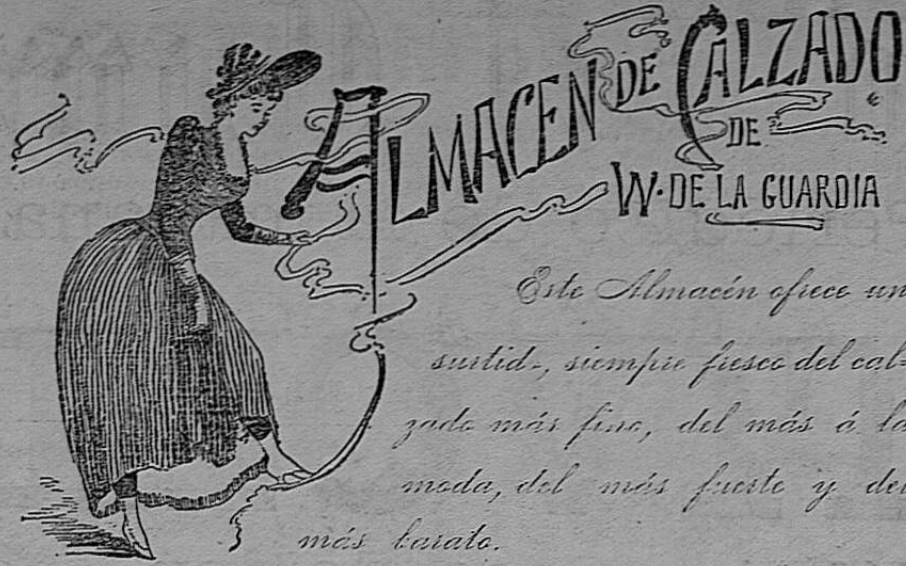 ALMACEN DE CALZADO
DE
W. DE LA GUARDIA
Este Almacén ofrece un
surtid-, siempre fresco del cal-
zado más fino, del más á la
moda, del más fuerte y del
más barato.